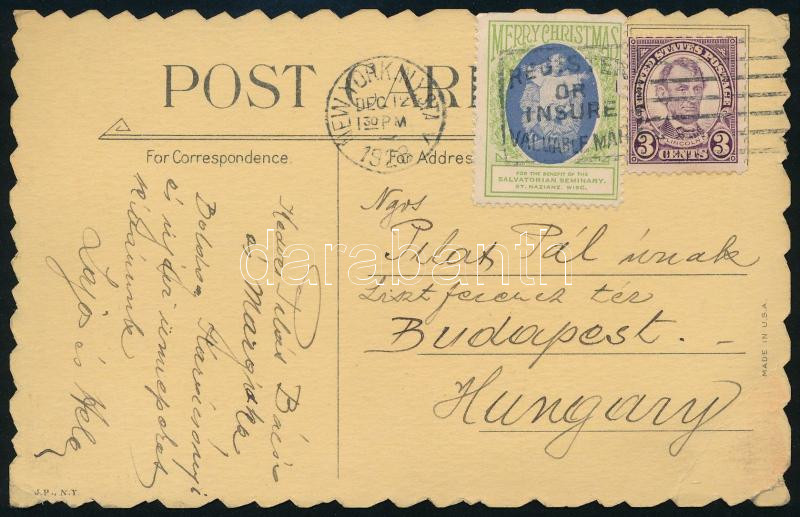 POST CARD
For Correspondence.
For Address
NEW YORK, N.Y.
DEC 12
1 30 PM
1928
MERRY CHRISTMAS
REGISTER
OR
INSURE
VALUABLE MAIL
FOR THE BENEFIT OF THE
SALVATORIAN SEMINARY,
ST. NAZIANZ, WISC.
UNITED STATES POSTAGE
LINCOLN
3 CENTS 3
Kedves Bácsi
és Margitka
Boldog Karácsonyi
és ujévi ünnepeket
kivánunk
Lajos és
Ngos
Pál úrnak
Liszt ferencz tér
Budapest.
Hungary
MADE IN U.S.A.
J.P., N.Y
darabanth